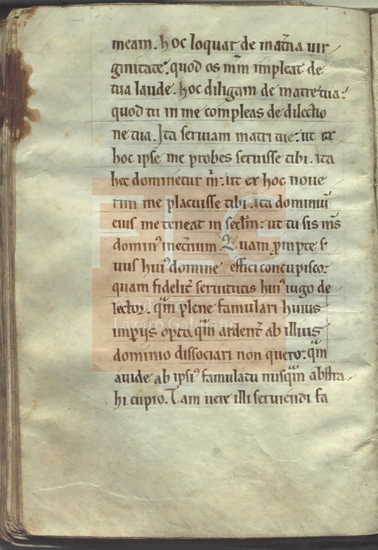 meam. hoc loquar de mat̃na uir
ginitate. quod os m̃m impleat de
tua laude. hoc diligam de matre tua.
quod tu in me compleas de dilectio
ne tua. Ita seruiam matri tue. ut ex
hoc ipse me probes seruisse tibi. ita
hec dominetur m̃. ut ex hoc noue
rim me placuisse tibi. ita dominiũ
eius me teneat in sclm̃. ut tu sis m̃s
domin᷒ inet̃num. Quam p̃mpte s̃
uus hui᷒ domine effici concupisco.
quam fidelit̃ seruitutis hui᷒ iugo de
lector. qm̃ plene famulari huius
imp̃ijs opto. qm̃ ardent̃ ab illius
dominio dissociari non quero. qm̃
auide ab ipsi᷒ famulatu nusqm̃ abstra
hi cupio. Tam uere illi seruiendi fa